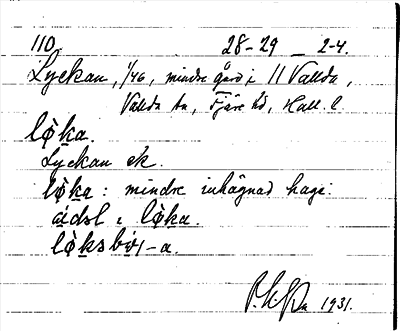 110. 28-29 — 2-4.
Lyckan, 1/46, mindre gård i 11 Vallda,
Vallda sn, Fjäre hd, Hall. l.
lø̀ka.
Lyckan ek.
lø̀ka: mindre inhägnad hage.
lø̀ka.
1931.